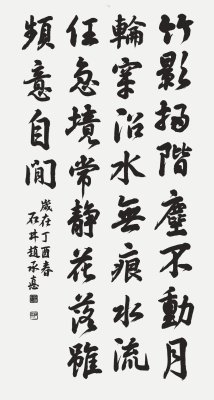 竹影掃階塵不動月
輪穿沼水無痕水流
任急境常靜花落雖
頻意自間
歲在丁酉春
石井趙承惪